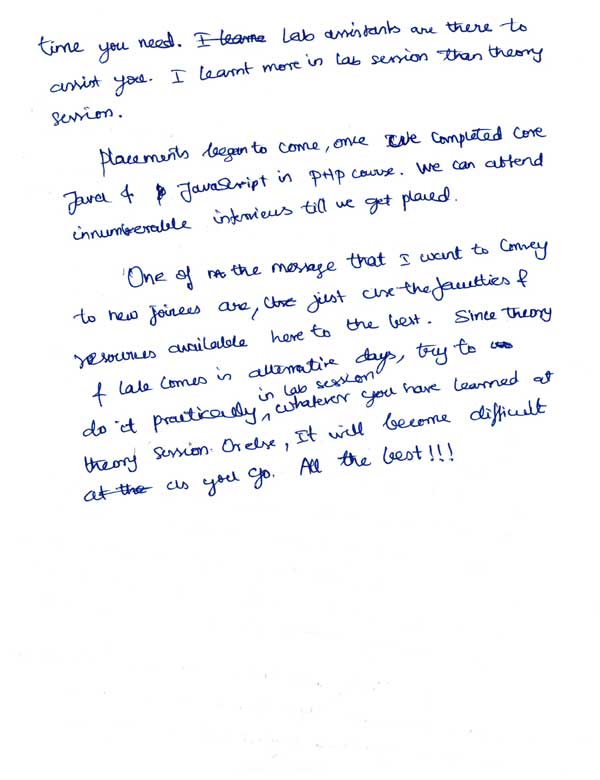 time you need. I learne Lab assistants are there to
assist you. I learnt more in lab session than theory
session.
Placements began to come, once I've completed core
Java & JavaScript in PHP course. We can attend
innumerable interviews till we get placed.
One of the message that I want to convey
to new joinees are, use just use the faculties &
resources available here to the best. Since theory
& lab comes in alternative days, try to
do it practically, in lab session whatever you have learned at
theory session. Or else, It will become difficult
at the as you go. All the best!!!